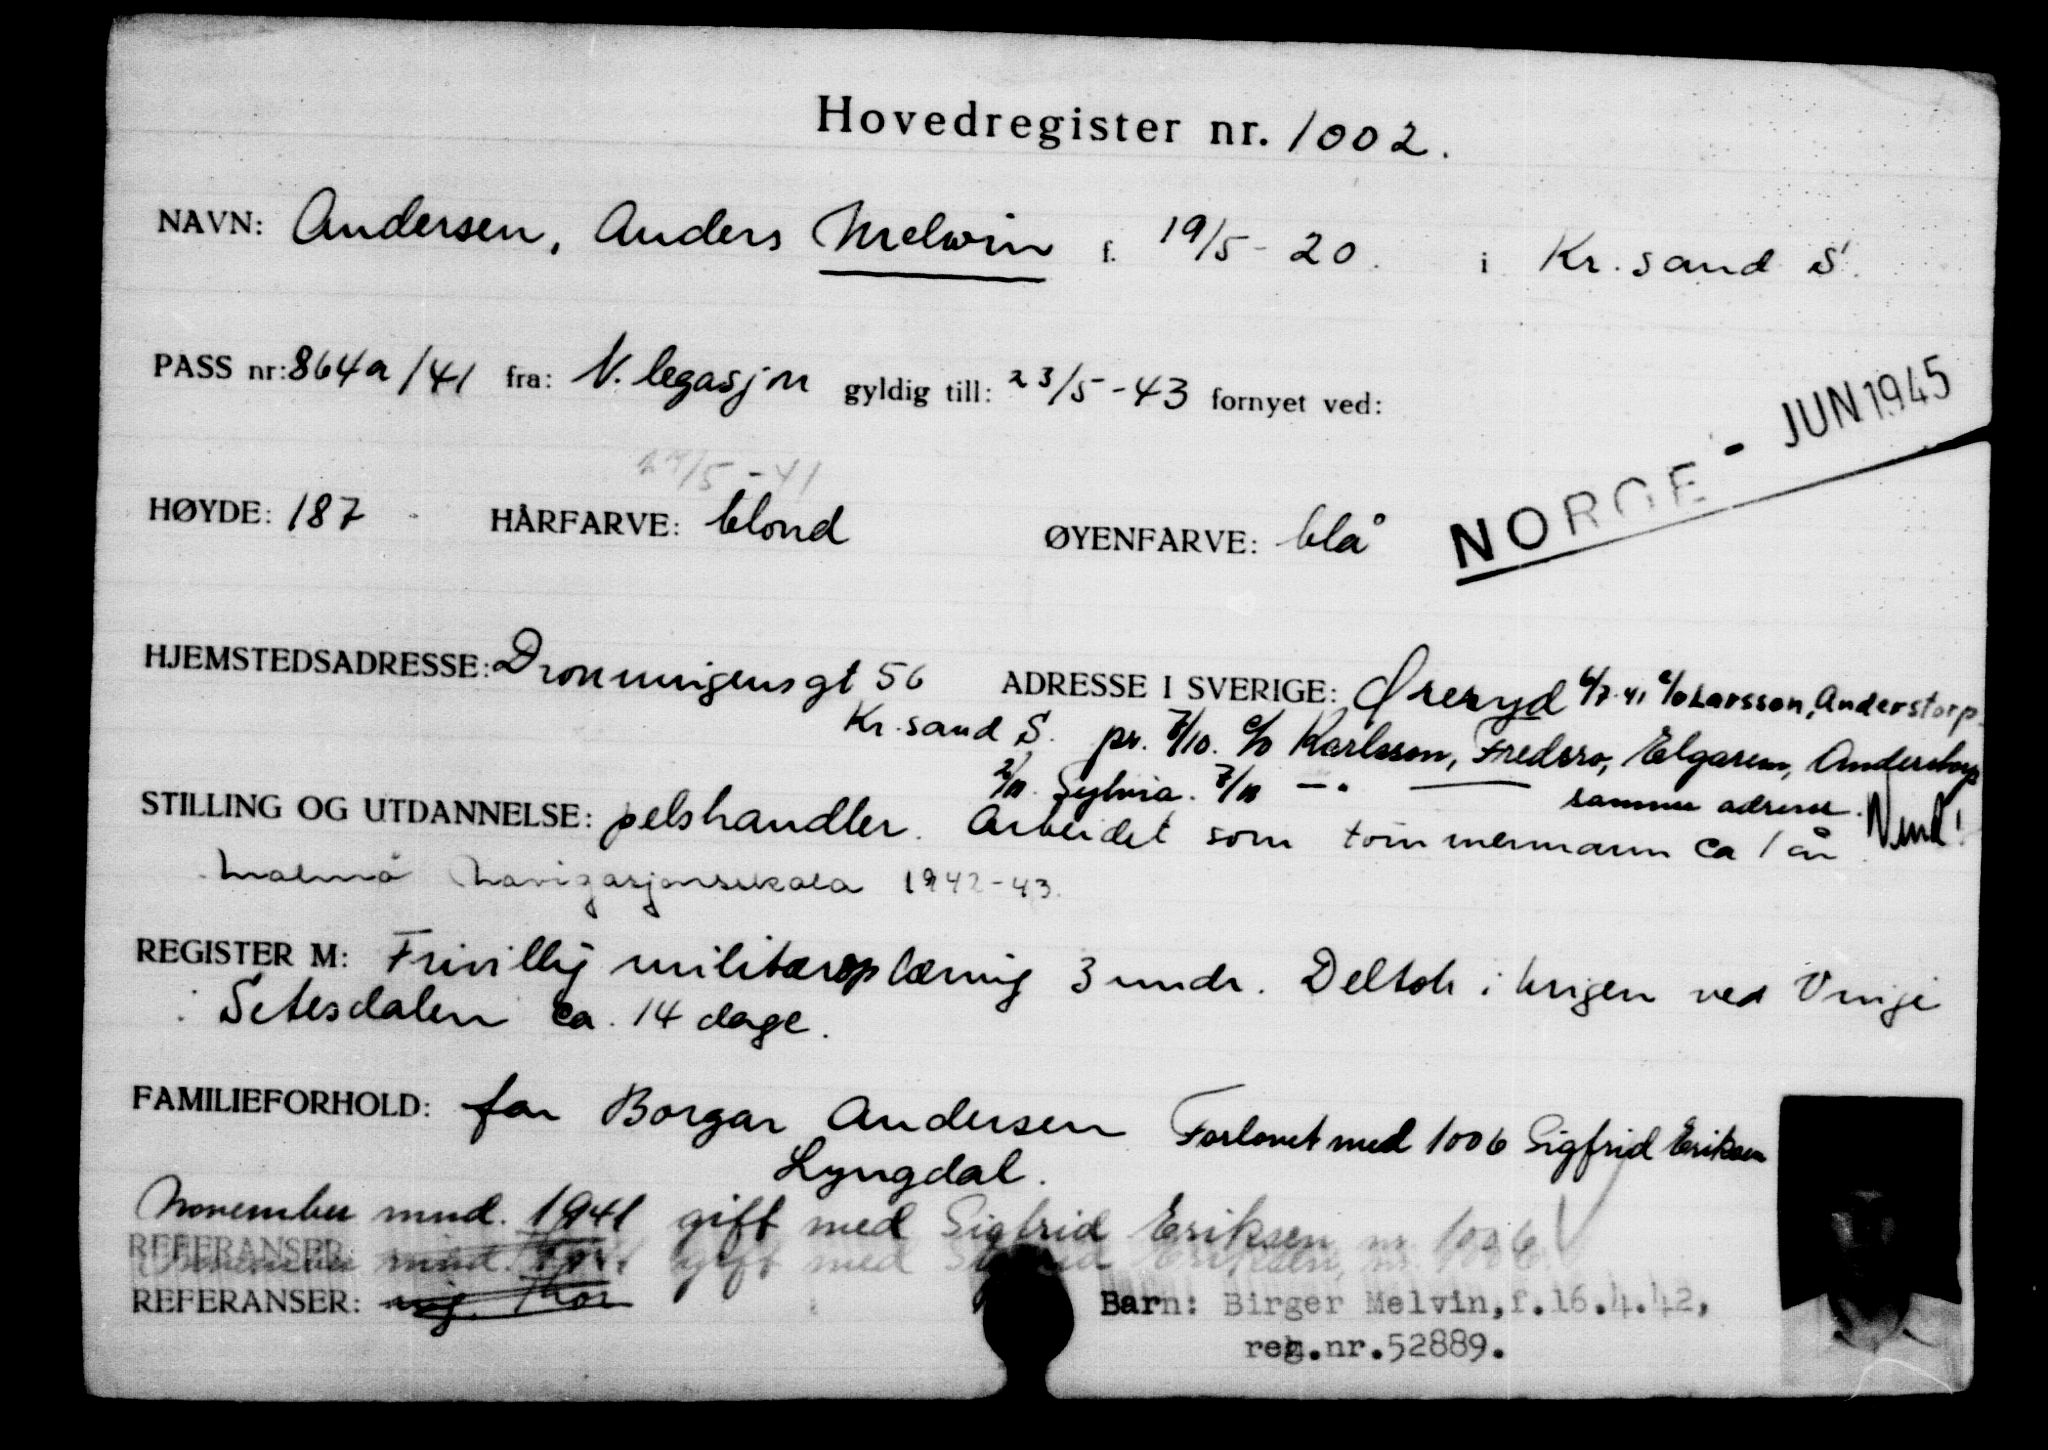 Hovedregister nr. 1002.
NAVN: Andersen, Anders Melwin f. 19/5-20. i Kr. sand S.
PASS nr: 864a/41 fra: N. legasjon gyldig till: 23/5-43 fornyet ved:
- JUN 1945
/5-41
NORGE
HØYDE: 187 HÅRFARVE: blond ØYENFARVE: blå
HJEMSTEDSADRESSE: Dronningensgt 56 ADRESSE I SVERIGE: Øreryd 6/7-41 c/o Larsson, Anderstorp
Kr. sand S. pr. 7/10. c/o Karlsson, Fredsro, Elgaren, Anderstorp
2/11. Sylvia. 7/11 — " — samme adresse. Vend!
STILLING OG UTDANNELSE: pelshandler. Arbeidet som tømmermann ca 1 år
Malmö Navigasjonsskola 1942-43.
REGISTER M: Frivillig militæroplæring 3 mndr. Deltok i krigen ved Vinje
i Setesdalen ca. 14 dage.
FAMILIEFORHOLD: far Borgar Andersen Forlovet med 1006 Sigfrid Eriksen
Lyngdal.
November mnd. 1941 gift med Sigfrid Eriksen nr 1006
REFERANSER:
REFERANSER: Barn: Birger Melvin, f.16.4.42,
reg.nr.52889.